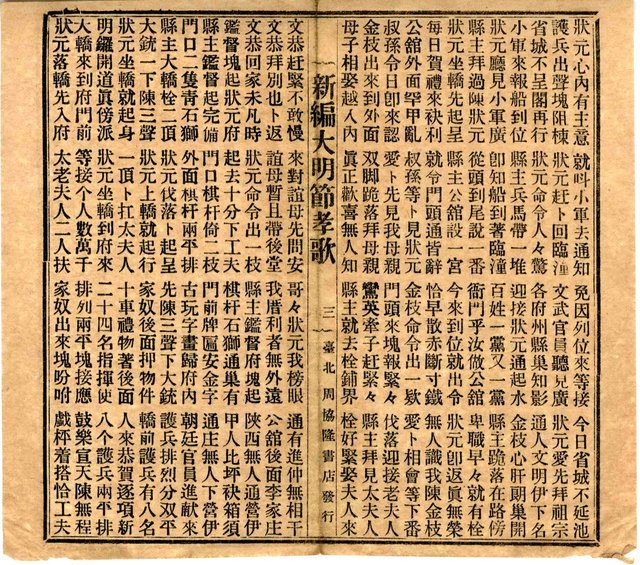 狀元心內有主意 就呌小軍去通知 免因列位來等接 今日省城不延池
護兵出聲塊阻棟 狀元赶卜回臨潼 文武官員聽見廣 狀元愛先拜祖宗
省城不呈閣再行 狀元命令人々驚 各府州縣巢知影 通人文明伊下名
小軍來報船到位 縣主兵馬帶一堆 迎接狀元通起水 金枝心肝朗巢開
狀元廳見小軍廣 卽知船到著臨潼 百姓一黨又一黨 縣主跪落在路傍
縣主拜過陳狀元 從頭到尾說一番 衙門乎汝做公舘 卑職早々就有栓
狀元坐轎先起呈 縣主公舘設一宮 今來到位就出令 狀元卽返眞無榮
每日賀禮來袂利 就令門頭通皆辭 恰早散赤斷寸鐵 無人識我陳金枝
公舘外面罕甲亂 叔孫等卜見狀元 金枝命令出一欵 愛卜相會等下番
叔孫令日卽來認 愛卜先見我母親 門頭來塊報緊々 伐落迎接老夫人
金枝出來到外面 双脚跪落拜母親 鸞英牽子赶緊々 縣主拜見太夫人
母子相娶越入內 眞正歡喜無人知 縣主就去栓鋪界 栓好緊娶夫人來
新編大明節孝歌 三 臺北周協隆書店發行
文恭赶緊不敢慢 來對誼母先問安 哥々狀元我榜眼 通有進仲無相干
文恭拜別也卜返 誼母暫且帶後堂 我厝利者無外遠 公舘後面李家庄
文恭回家未凡時 狀元命令出一枝 縣主鑑督府塊起 陝西無人通營伊
鑑督塊起狀元府 起去十分下工夫 棋杆石獅通巢有 甲人比坪袂箱須
縣主鑑督起完備 門口棋杆倚二枝 門前牌匾安金字 通庄無人下營伊
門口二隻青石獅 外面棋杆兩平排 古玩字畫歸府內 朝廷官員進献來
縣主大轎栓二頂 狀元伐落卜起呈 先陳三聲下大銃 護兵排烈分双平
大銃一下陳三聲 狀元上轎就起行 家奴後面押物件 轎前護兵有八名
狀元坐轎就起身 一頂卜扛太夫人 十車禮物著後面 人來恭賀逐項新
明鑼開道眞傍派 狀元坐轎到府來 二十四名指揮使 八个護兵兩平排
大轎來到府門前 等接个人數萬千 排列兩平塊接應 鼓樂宣天陳無程
狀元落轎先入府 太老夫人二人扶 家奴出來塊吩咐 戯枰着搭恰工夫